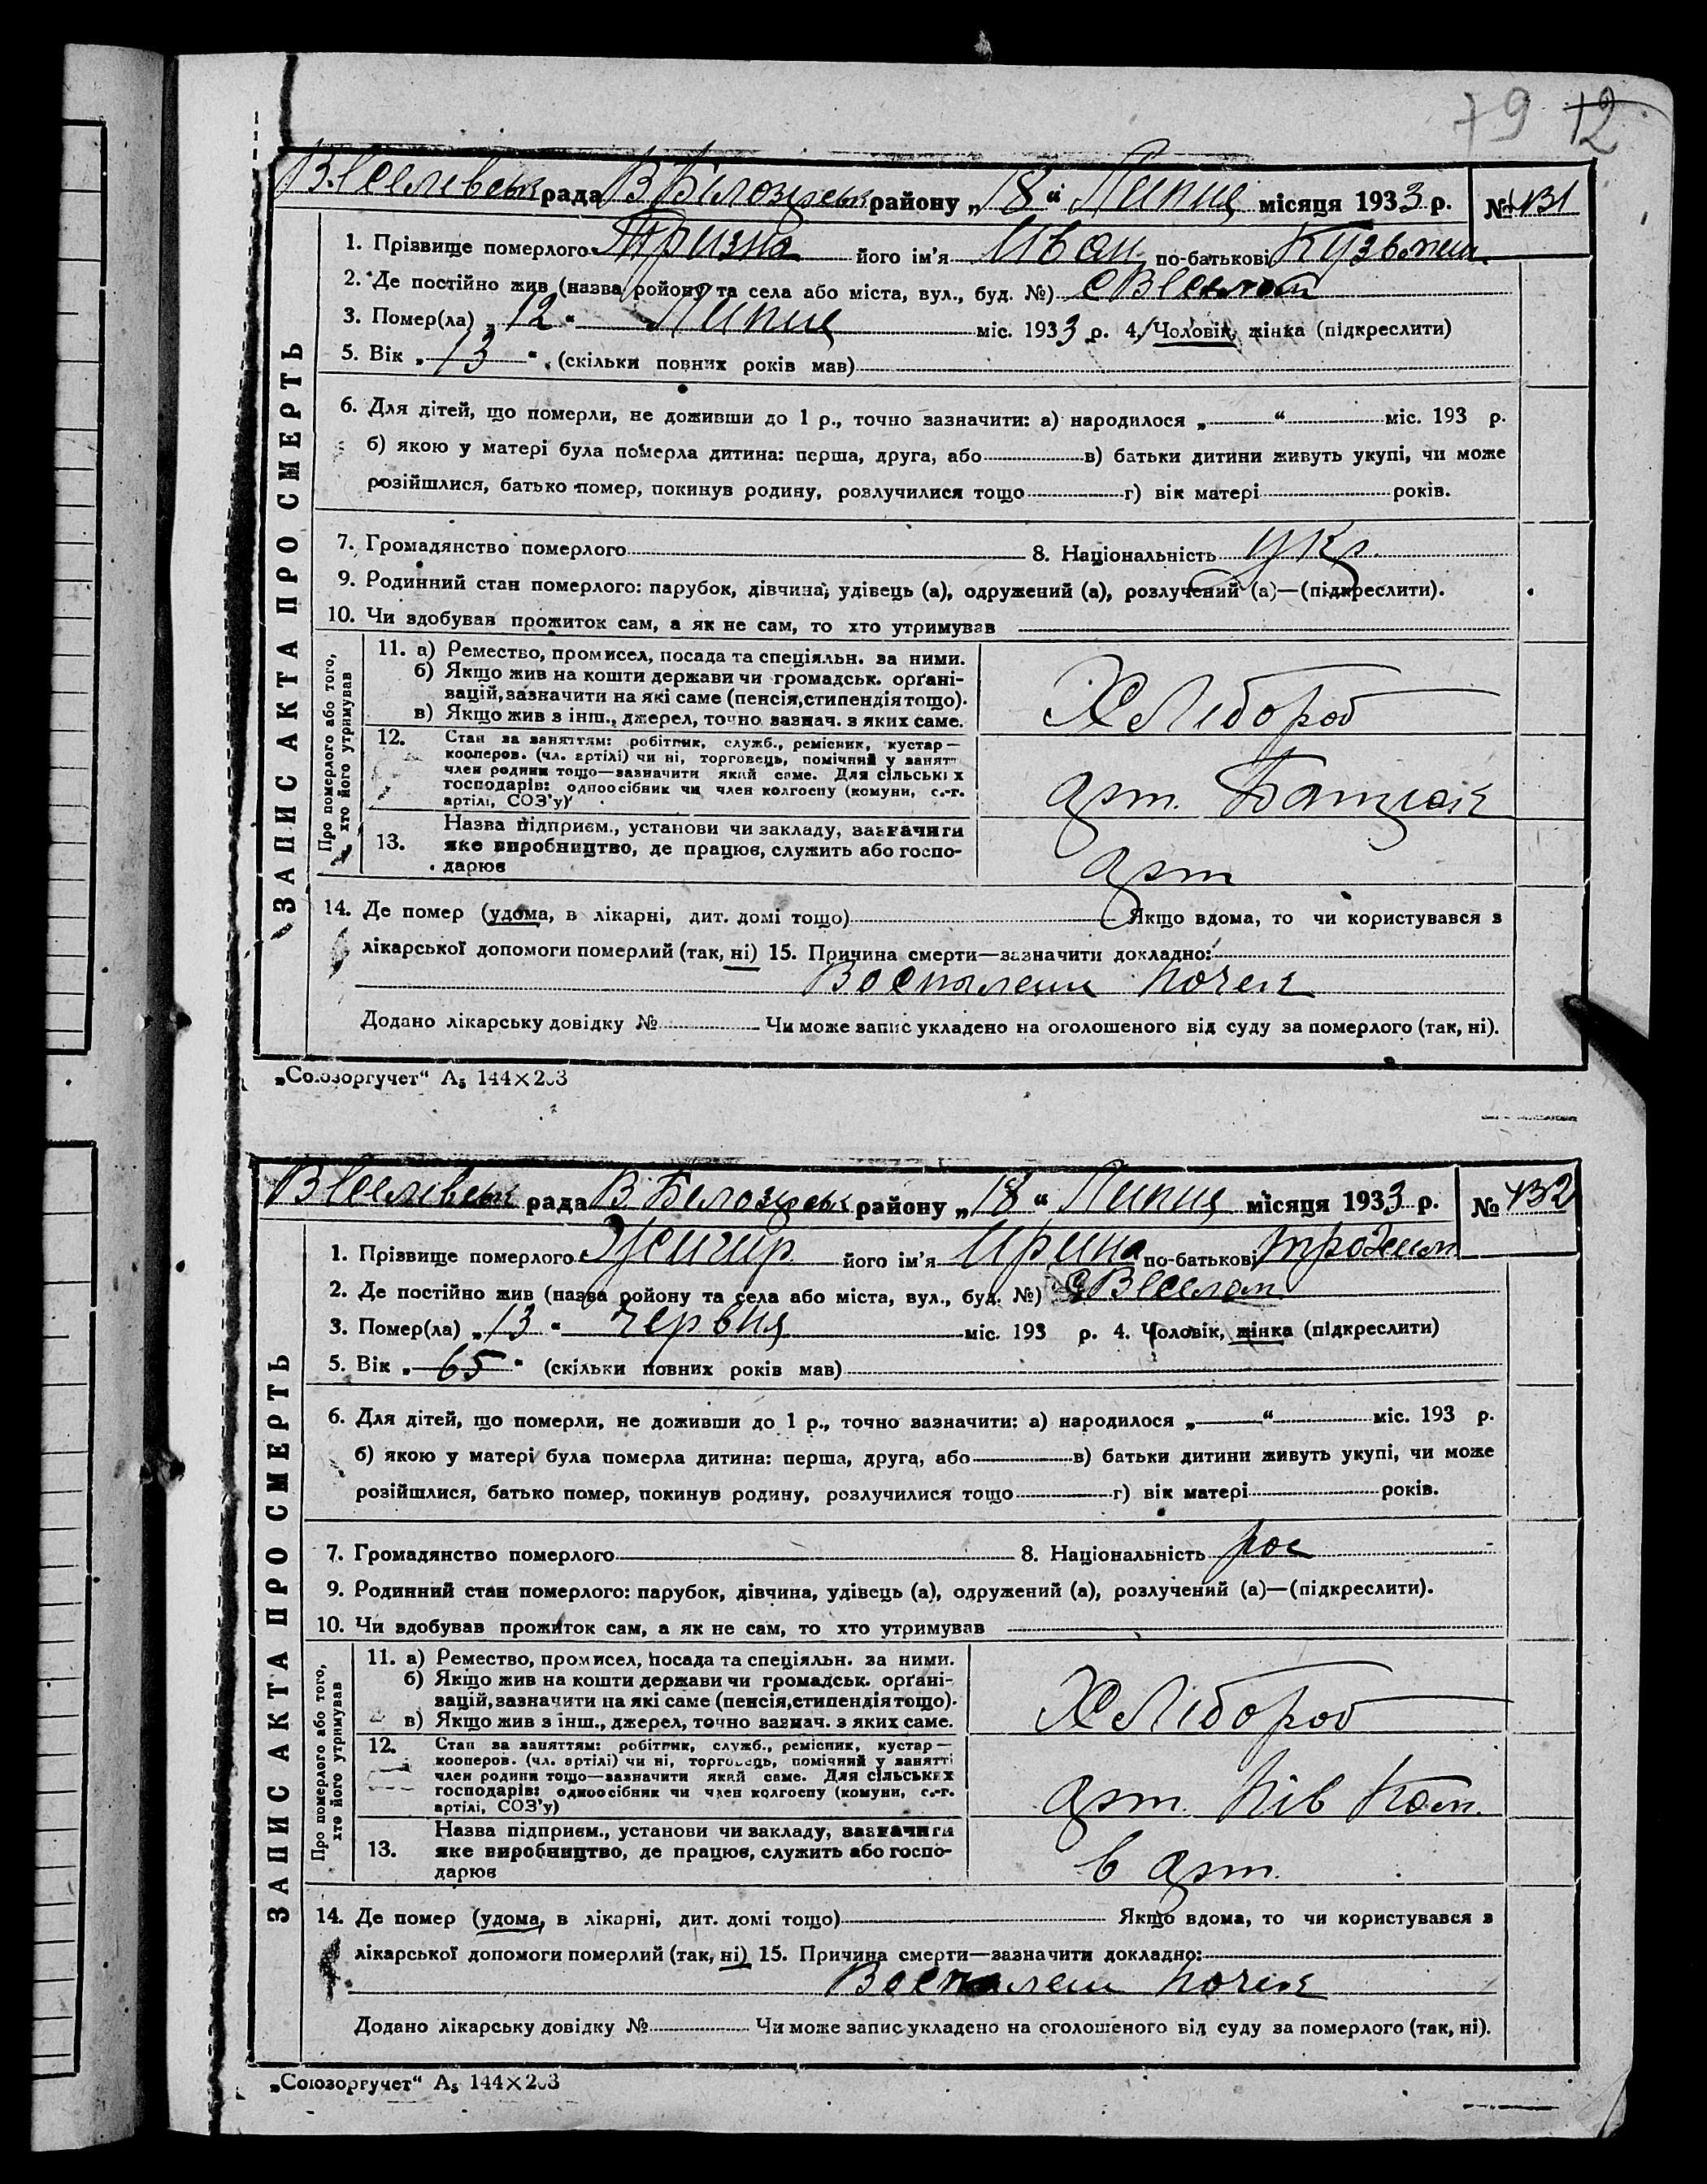 79 12
Веселівськ рада В Білозірськ району „18“ Липня місяця 1933 р. № 131
1. Прізвище померлого Тризна його ім’я Иван по-батькові Кузьмич
2. Де постійно жив (назва ройону та села або міста, вул., буд. №) с Веселом
3. Помер(ла) „12“ Липня міс. 1933 р. 4. Чоловік, жінка (підкреслити)
5. Вік „73“ (скільки повних років мав)
6. Для дітей, що померли, не доживши до 1 р., точно зазначити: а) народилося „ “ міс. 193 р.
б) якою у матері була померла дитина: перша, друга, або в) батьки дитини живуть укупі, чи може
розійшлися, батько помер, покинув родину, розлучилися тощо г) вік матері років.
7. Громадянство померлого 8. Національність укр.
9. Родинний стан померлого: парубок, дівчина, удівець (а), одружений (а), розлучений (а)—(підкреслити).
10. Чи здобував прожиток сам, а як не сам, то хто утримував
ЗАПИС АКТА ПРО СМЕРТЬ
Про померлого або того,
хто його утримував
11. а) Ремество, промисел, посада та спеціяльн. за ними.
б) Якщо жив на кошти держави чи громадськ. орґані-
зацій, зазначити на які саме (пенсія, стипендія тощо).
в) Якщо жив з інш., джерел, точно зазнач. з яких саме.
Хлібороб
12. Стан за заняттям: робітник, служб., ремісник, кустар—
кооперов. (чл. артілі) чи ні, торговець, помічний у занятт
член родини тощо—зазначити який саме. Для сільських
господарів: одноосібник чи член колгоспу (комуни, с.-г.
артілі, СОЗ’у)
арт.
13. Назва підприєм., установи чи закладу, зазначити
яке виробництво, де працює, служить або госпо-
дарює
арт
14. Де помер (удома, в лікарні, дит. домі тощо) Якщо вдома, то чи користувався з
лікарської допомоги померлий (так, ні) 15. Причина смерти—зазначити докладно:
Воспалени почек
Додано лікарську довідку № Чи може запис укладено на оголошеного від суду за померлого (так, ні).
„Союзоргучет“ А5 144×203
Веселівськ рада В. Білозірськ району „18“ Липня місяця 1933 р. № 132
1. Прізвище померлого його ім’я Ирина по-батькові
2. Де постійно жив (назва ройону та села або міста, вул., буд. №) с Веселом
3. Помер(ла) „13“ червня міс. 193 р. 4. Чоловік, жінка (підкреслити)
5. Вік „65“ (скільки повних років мав)
6. Для дітей, що померли, не доживши до 1 р., точно зазначити: а) народилося „ “ міс. 193 р.
б) якою у матері була померла дитина: перша, друга, або в) батьки дитини живуть укупі, чи може
розійшлися, батько помер, покинув родину, розлучилися тощо г) вік матері років.
7. Громадянство померлого 8. Національність рос
9. Родинний стан померлого: парубок, дівчина, удівець (а), одружений (а), розлучений (а)—(підкреслити).
10. Чи здобував прожиток сам, а як не сам, то хто утримував
ЗАПИС АКТА ПРО СМЕРТЬ
Про померлого або того,
хто його утримував
11. а) Ремество, промисел, посада та спеціяльн. за ними.
б) Якщо жив на кошти держави чи громадськ. орґані-
зацій, зазначити на які саме (пенсія, стипендія тощо).
в) Якщо жив з інш., джерел, точно зазнач. з яких саме.
Хлібороб
12. Стан за заняттям: робітник, служб., ремісник, кустар—
кооперов. (чл. артілі) чи ні, торговець, помічний у занятті
член родини тощо—зазначити який саме. Для сільських
господарів: одноосібник чи член колгоспу (комуни, с.-г.
артілі, СОЗ’у)
арт.
13. Назва підприєм., установи чи закладу, зазначити
яке виробництво, де працює, служить або госпо-
дарює
в арт.
14. Де помер (удома, в лікарні, дит. домі тощо) Якщо вдома, то чи користувався з
лікарської допомоги померлий (так, ні) 15. Причина смерти—зазначити докладно:
Воспалени почек
Додано лікарську довідку № Чи може запис укладено на оголошеного від суду за померлого (так, ні).
„Союзоргучет“ А5 144×203